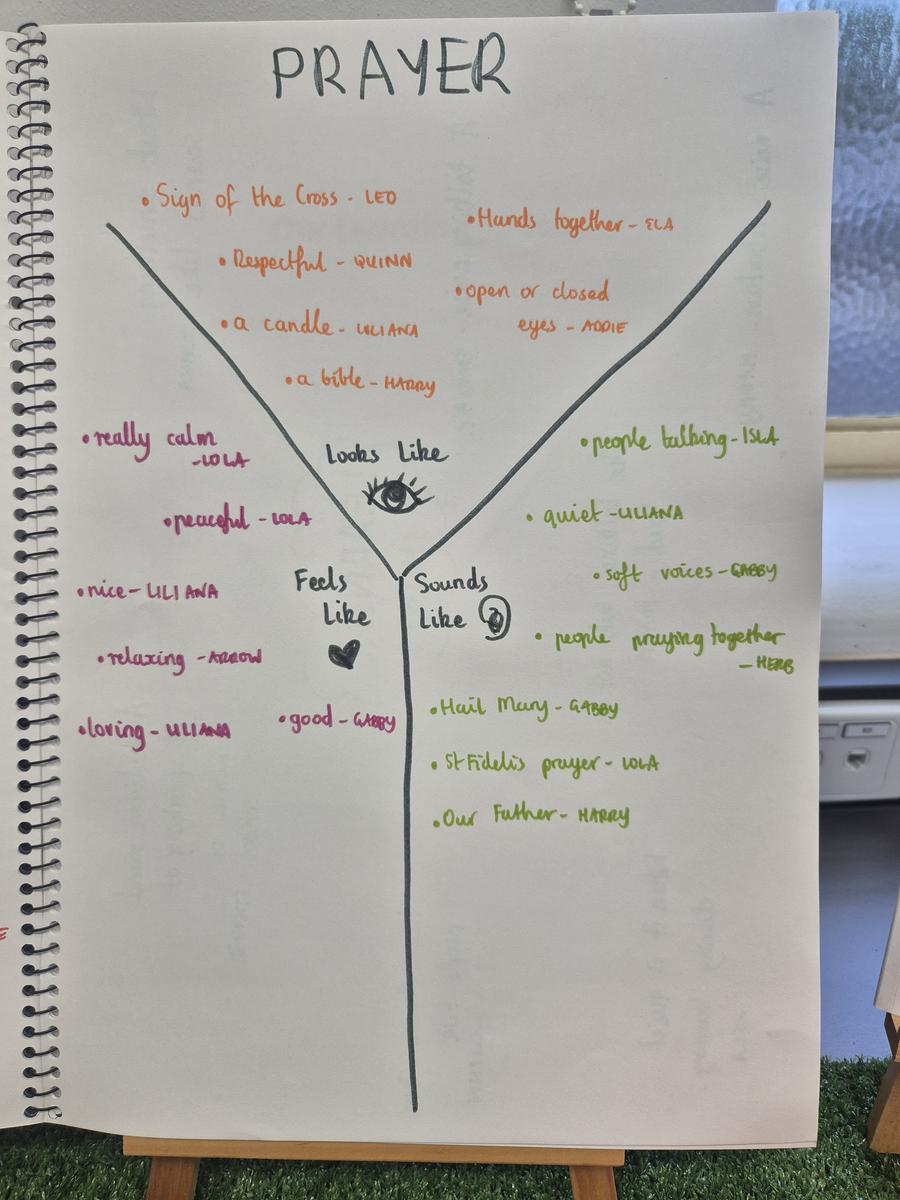 PRAYER
• Sign of the Cross - LEO
• Hands together - ELA
• Respectful - QUINN
• open or closed
eyes - ADDIE
• a candle - LILIANA
• a bible - HARRY
Looks Like
• really calm
- LOLA
• peaceful - LOLA
• nice - LILIANA
• relaxing - ARROW
• loving - LILIANA
• good - GABBY
Feels
Like
Sounds
Like
• people talking - ISLA
• quiet - LILIANA
• soft voices - GABBY
• people praying together
- HERB
• Hail Mary - GABBY
• St Fidelis prayer - LOLA
• Our Father - HARRY